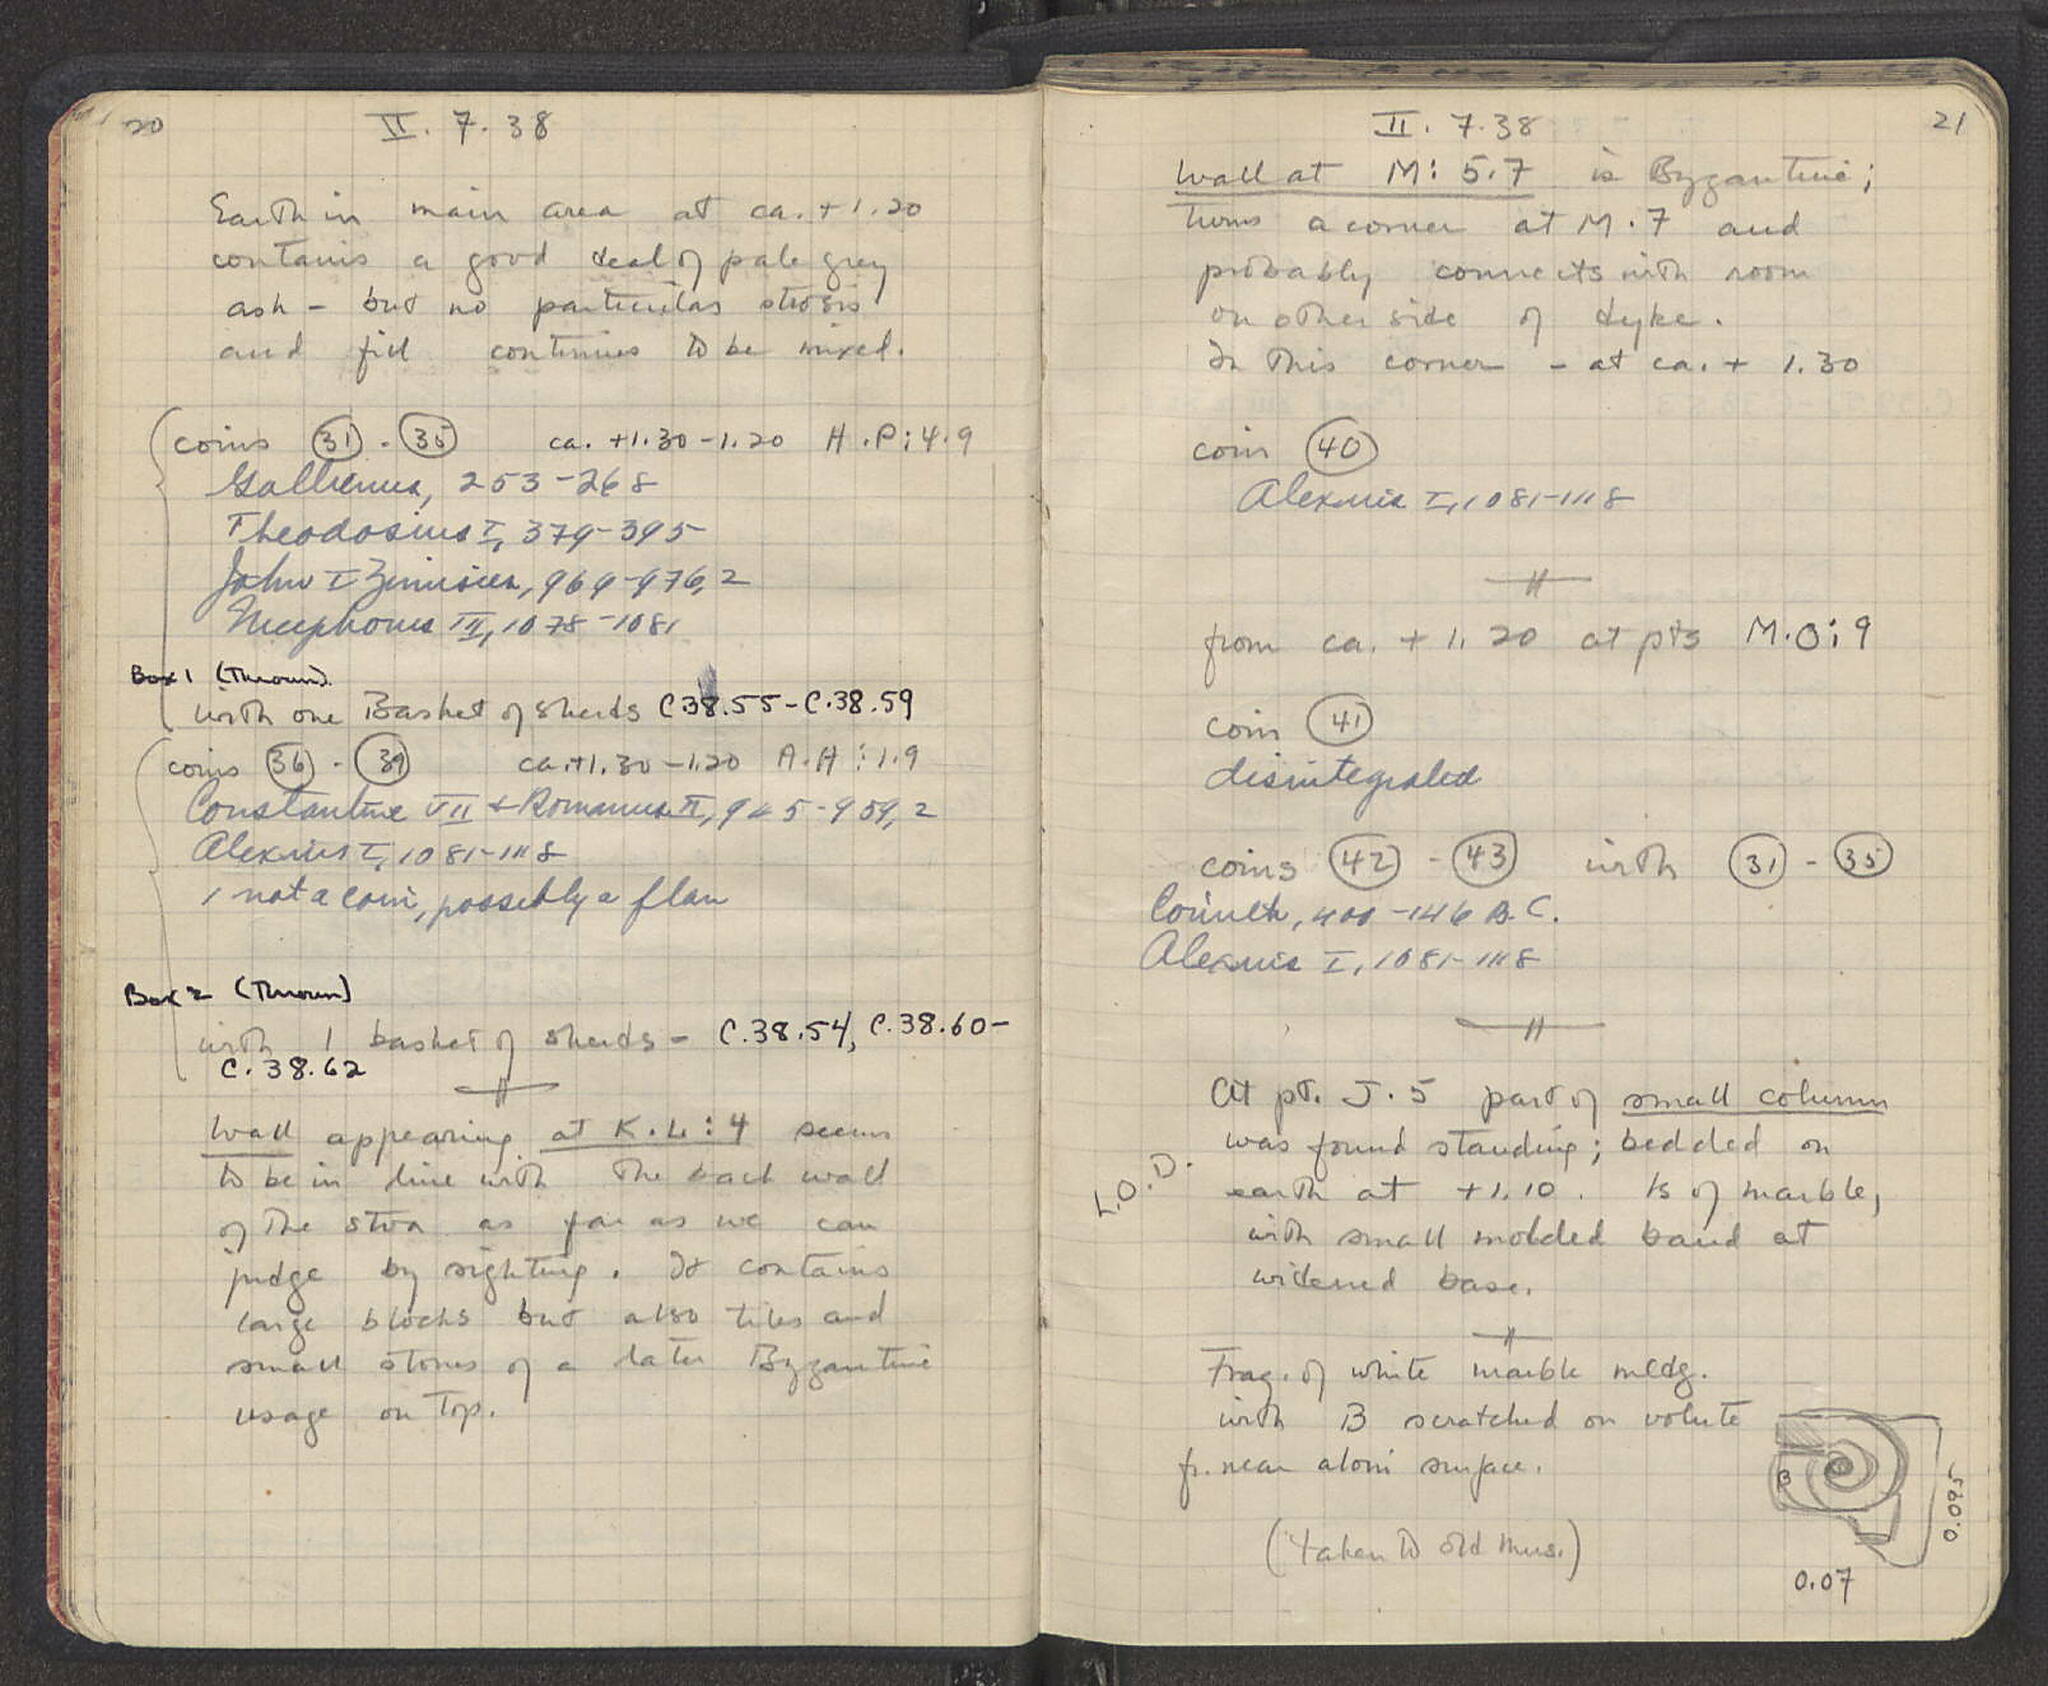 20
II. 7. 38
Earth in main area at ca. + 1.20
contains a good deal of pale grey
ash - but no particular strosis
and fill continues to be mixed.
coins 31 - 35 ca. +1.30 - 1.20 H.P:4.9
Gallienus, 253-268
Theodosius I, 379-395
John I Zimisces, 969-976, 2
Nicephorus III, 1078-1081
Box 1 (Thrown)
with one Basket of sherds C 38.55 - C.38.59
coins 36 - 39 ca. +1.30 - 1.20 A.H:1.9
Constantine VII + Romanus II, 945-959, 2
Alexius I, 1081-1118
1 not a coin, possibly a flan
Box 2 (Thrown)
with 1 basket of sherds - C.38.54, C.38.60-
C.38.62
Wall appearing at K.L:4 seems
to be in line with the back wall
of the stoa as far as we can
judge by sighting. It contains
large blocks but also tiles and
small stones of a later Byzantine
usage on top.
21
II. 7.38
Wall at M: 5.7 is Byzantine;
turns a corner at M.7 and
probably connects with room
on other side of dyke.
In this corner - at ca. + 1.30
coin 40
Alexius I, 1081-1118
from ca. + 1.20 at pts M.O:9
coin 41
disintegrated
coins 42 - 43 with 31 - 35
Corinth, 400-146 B.C.
Alexius I, 1081-1118
At pt. J.5 part of small column
was found standing; bedded on
L.O.D.
earth at +1.10. Is of marble,
with small molded band at
widened base.
Frag. of white marble mldg.
with B scratched on volute
fr. near aloni surface.
B
0.095
(taken to old mus.)
0.07